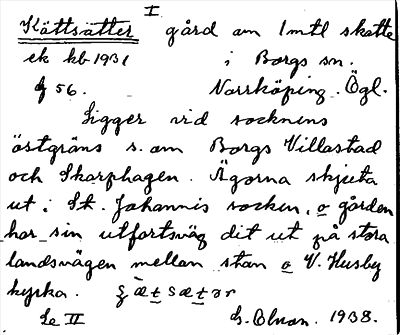 I
Kättsätter gård om 1 mtl skatte
ek kb 1931 i Borgs sn.
g 56. Norrköping. Ögl.
Ligger vid socknens
östgräns s. om Borgs Villastad
och Skarphagen. Ägorna skjuta
ut i St. Johannis socken, o gården
har sin utfartsväg dit ut på stora
landsvägen mellan stan o V. Husby
kyrka.
Le II G. Elman. 1938.